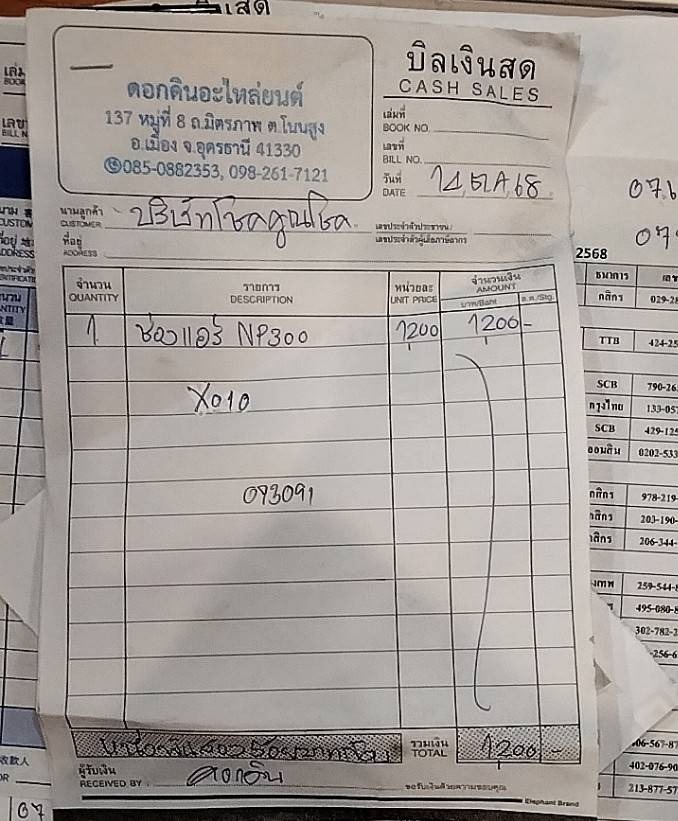 บิลเงินสด
CASH SALES
ดอกคินอะไหล่ยนต์
137 หมู่ที่ 8 ถ.มิตรภาพ ต.โนนสูง
อ.เมือง จ.อุดรธานี 41330
085-0882353, 098-261-7121
เล่มที่
BOOK NO.
เลขที่
BILL NO.
วันที่
DATE 14, ต.ค, 68
นามลูกค้า บริษัทโชคคูณโชค
CUSTOMER
เลขประจำตัวประชาชน/
เลขประจำตัวผู้เสียภาษีอากร
ที่อยู่
ADDRESS
จำนวน รายการ หน่วยละ จำนวนเงิน
QUANTITY DESCRIPTION UNIT PRICE AMOUNT
บาท/Baht ส.ต./Stg.
1 ช่องแอร์ NP300 1200 1200-
X010
093091
หนึ่งพันสองร้อยบาทถ้วน รวมเงิน 1200 -
TOTAL
ผู้รับเงิน
RECEIVED BY
ขอรับเงินด้วยความขอบคุณ
Elephant Brand
2568
ธนาคาร
กสิกร 029-2
TTB 424-25
SCB 790-26
กรุงไทย 133-05
SCB 429-12
ออมสิน 0202-533
กสิกร 978-219
กสิกร 203-190-
กสิกร 206-344-
259-544-
495-080-
302-782-2
-256-6
06-567-8
402-076-90
213-877-57
107